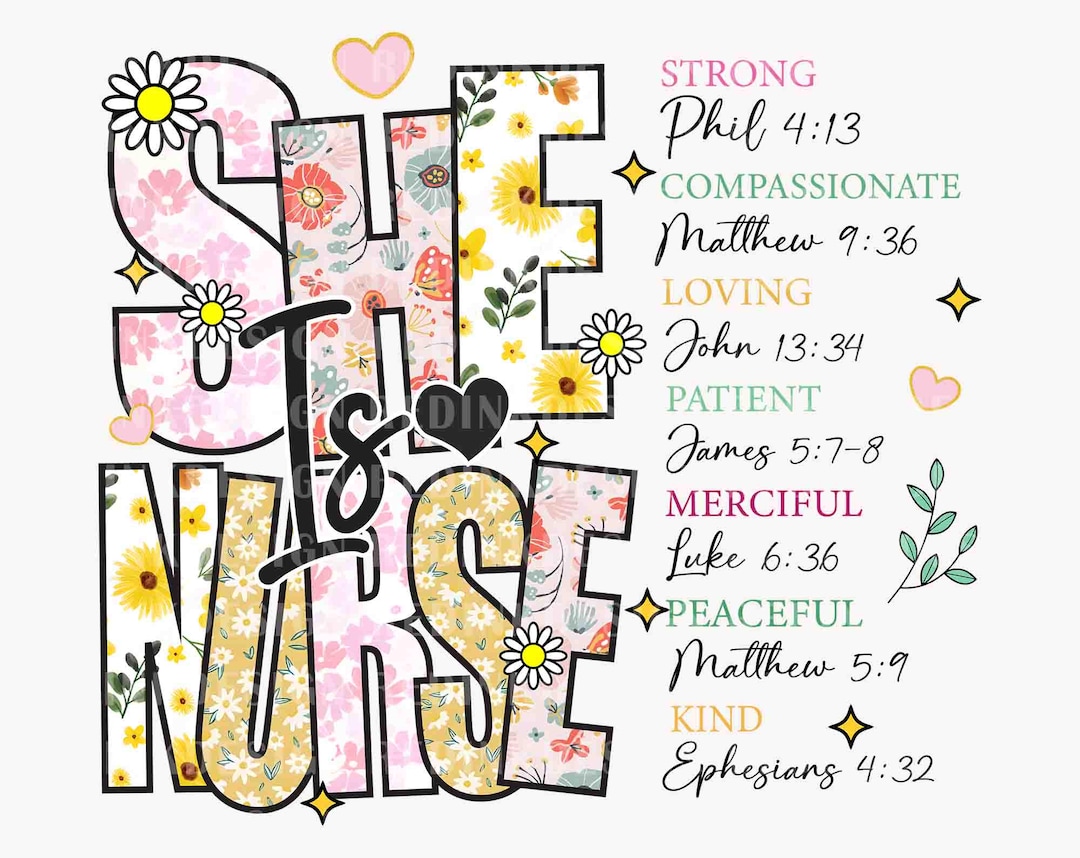 SHE
Is
NURSE
STRONG
Phil 4:13
COMPASSIONATE
Matthew 9:36
LOVING
John 13:34
PATIENT
James 5:7-8
MERCIFUL
Luke 6:36
PEACEFUL
Matthew 5:9
KIND
Ephesians 4:32